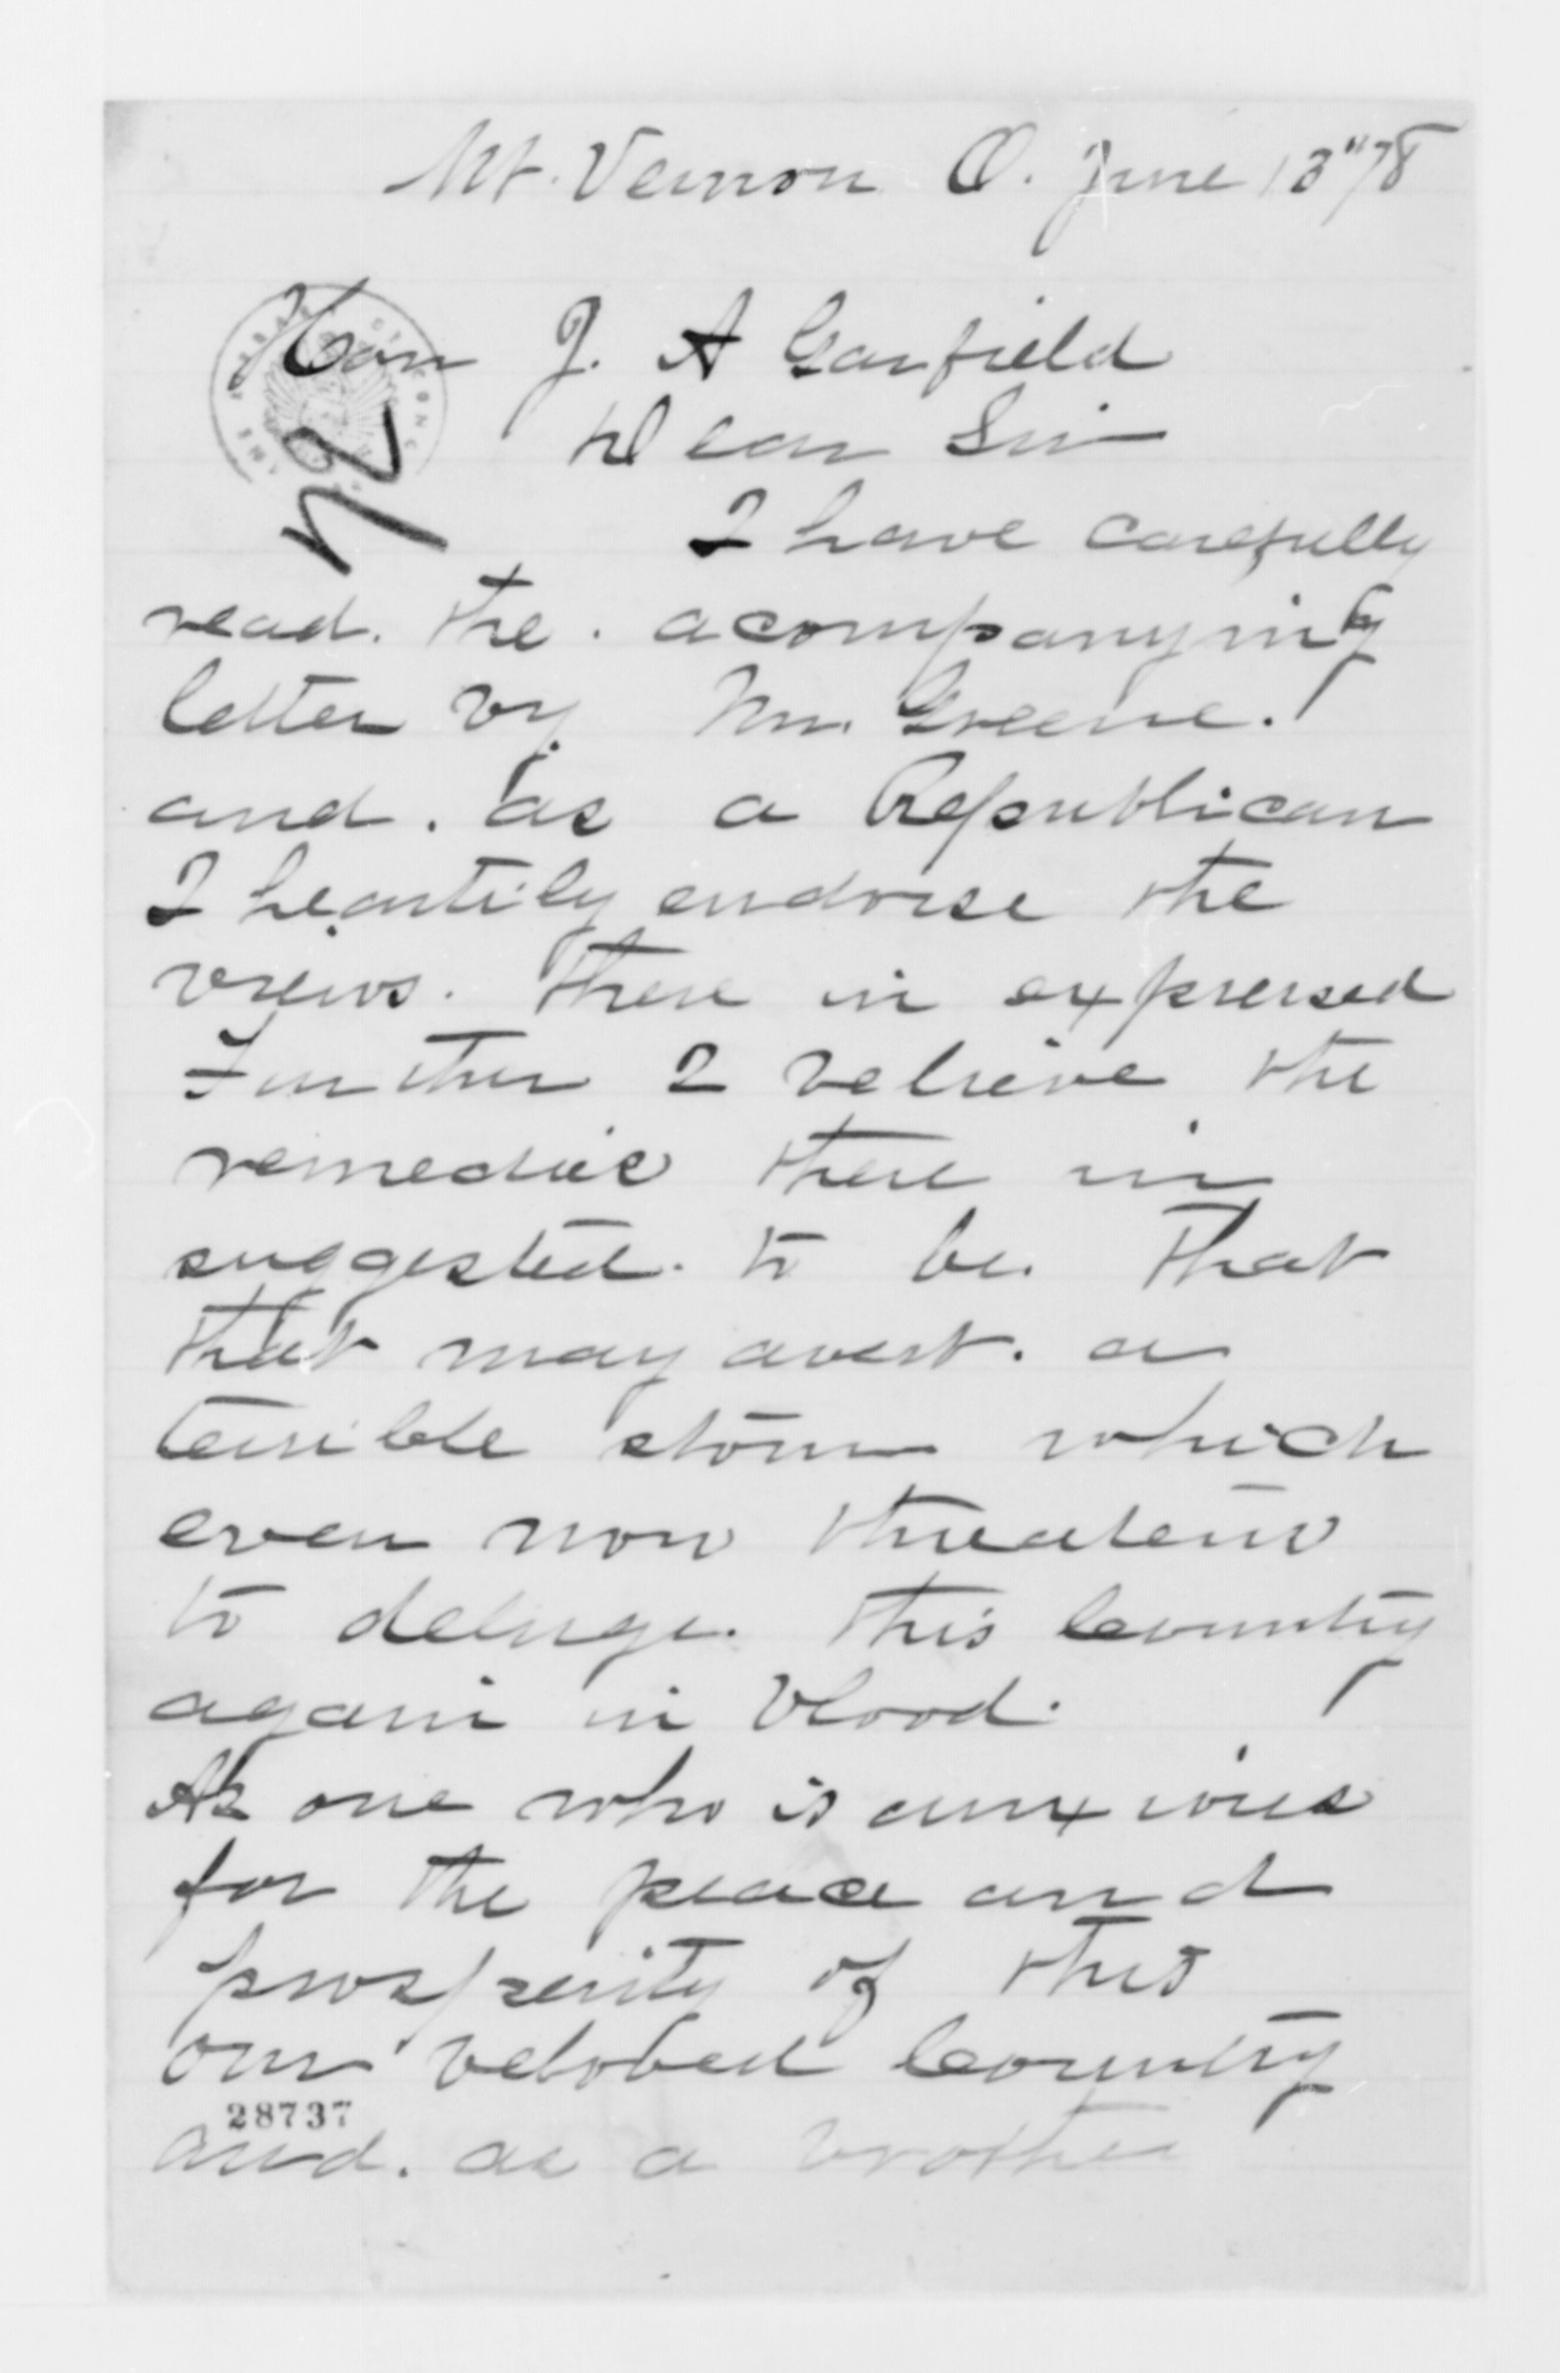 Mt. Vernon O. June 13"78
Hon J. A Garfield
Dear Sir
72
I have carefully
read. the. acompanying
letter by Mr. Greene.
and. as a Republican
I heartily endorse the
views. there in expressed
Further I believe the
remedies there in
suggested. to be. that
that may avert. a
terrible storm which
even now threatens
to deluge. this Country
again in blood.
As one who is anxious
for the peace and
prosperity of this
our beloved Country
28737
and. as a brother